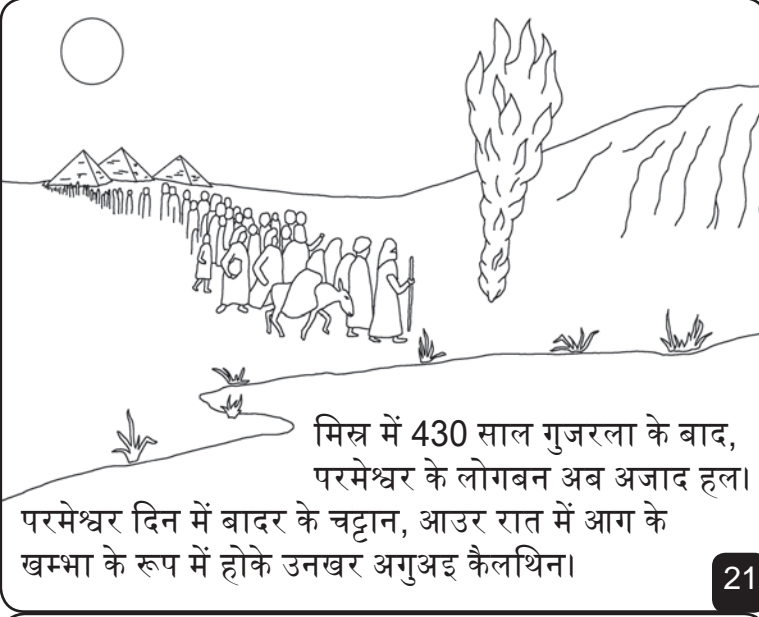 मिस्र में 430 साल गुजरला के बाद,
परमेश्वर के लोगबन अब अजाद हल।
परमेश्वर दिन में बादर के चट्टान, आउर रात में आग के
खम्भा के रूप में होके उनखर अगुअइ कैलथिन।
21